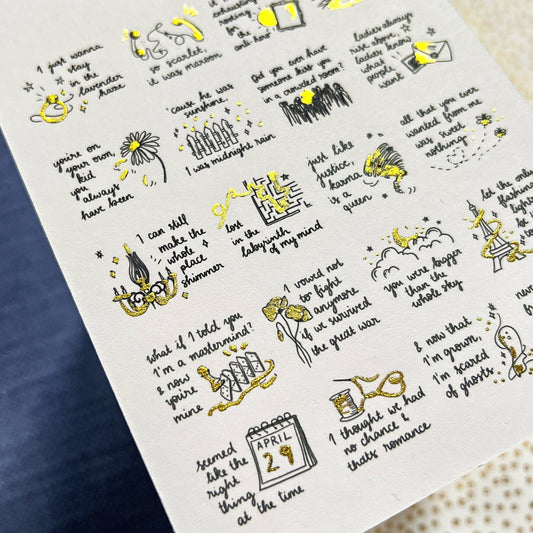 exhausting
rooting
for the
anti-hero
I just wanna
stay
in the
lavender
haze
so scarlet,
it was maroon
ladies always
rise above
ladies know
what
people
want
'cause he was
sunshine
I was midnight rain
did you ever have
someone kiss you
in a crowded room?
you're on
your own,
kid
you
always
have been
just like
justice
karma
is a
queen
all that you ever
wanted from me
was sweet
nothing
I can still
make the
whole
place
shimmer
lost
in the
labyrinth
of my mind
you were bigger
than the
whole sky
let the only
flashing
lights
be
what if I told you
I'm a mastermind?
& now
you're
mine
I vowed not
to fight
anymore
if we survived
the great war
& now that
I'm grown
I'm scared
of ghosts
seemed
like the
right
thing
at the time
APRIL
29
I thought we had
no chance &
thats romance